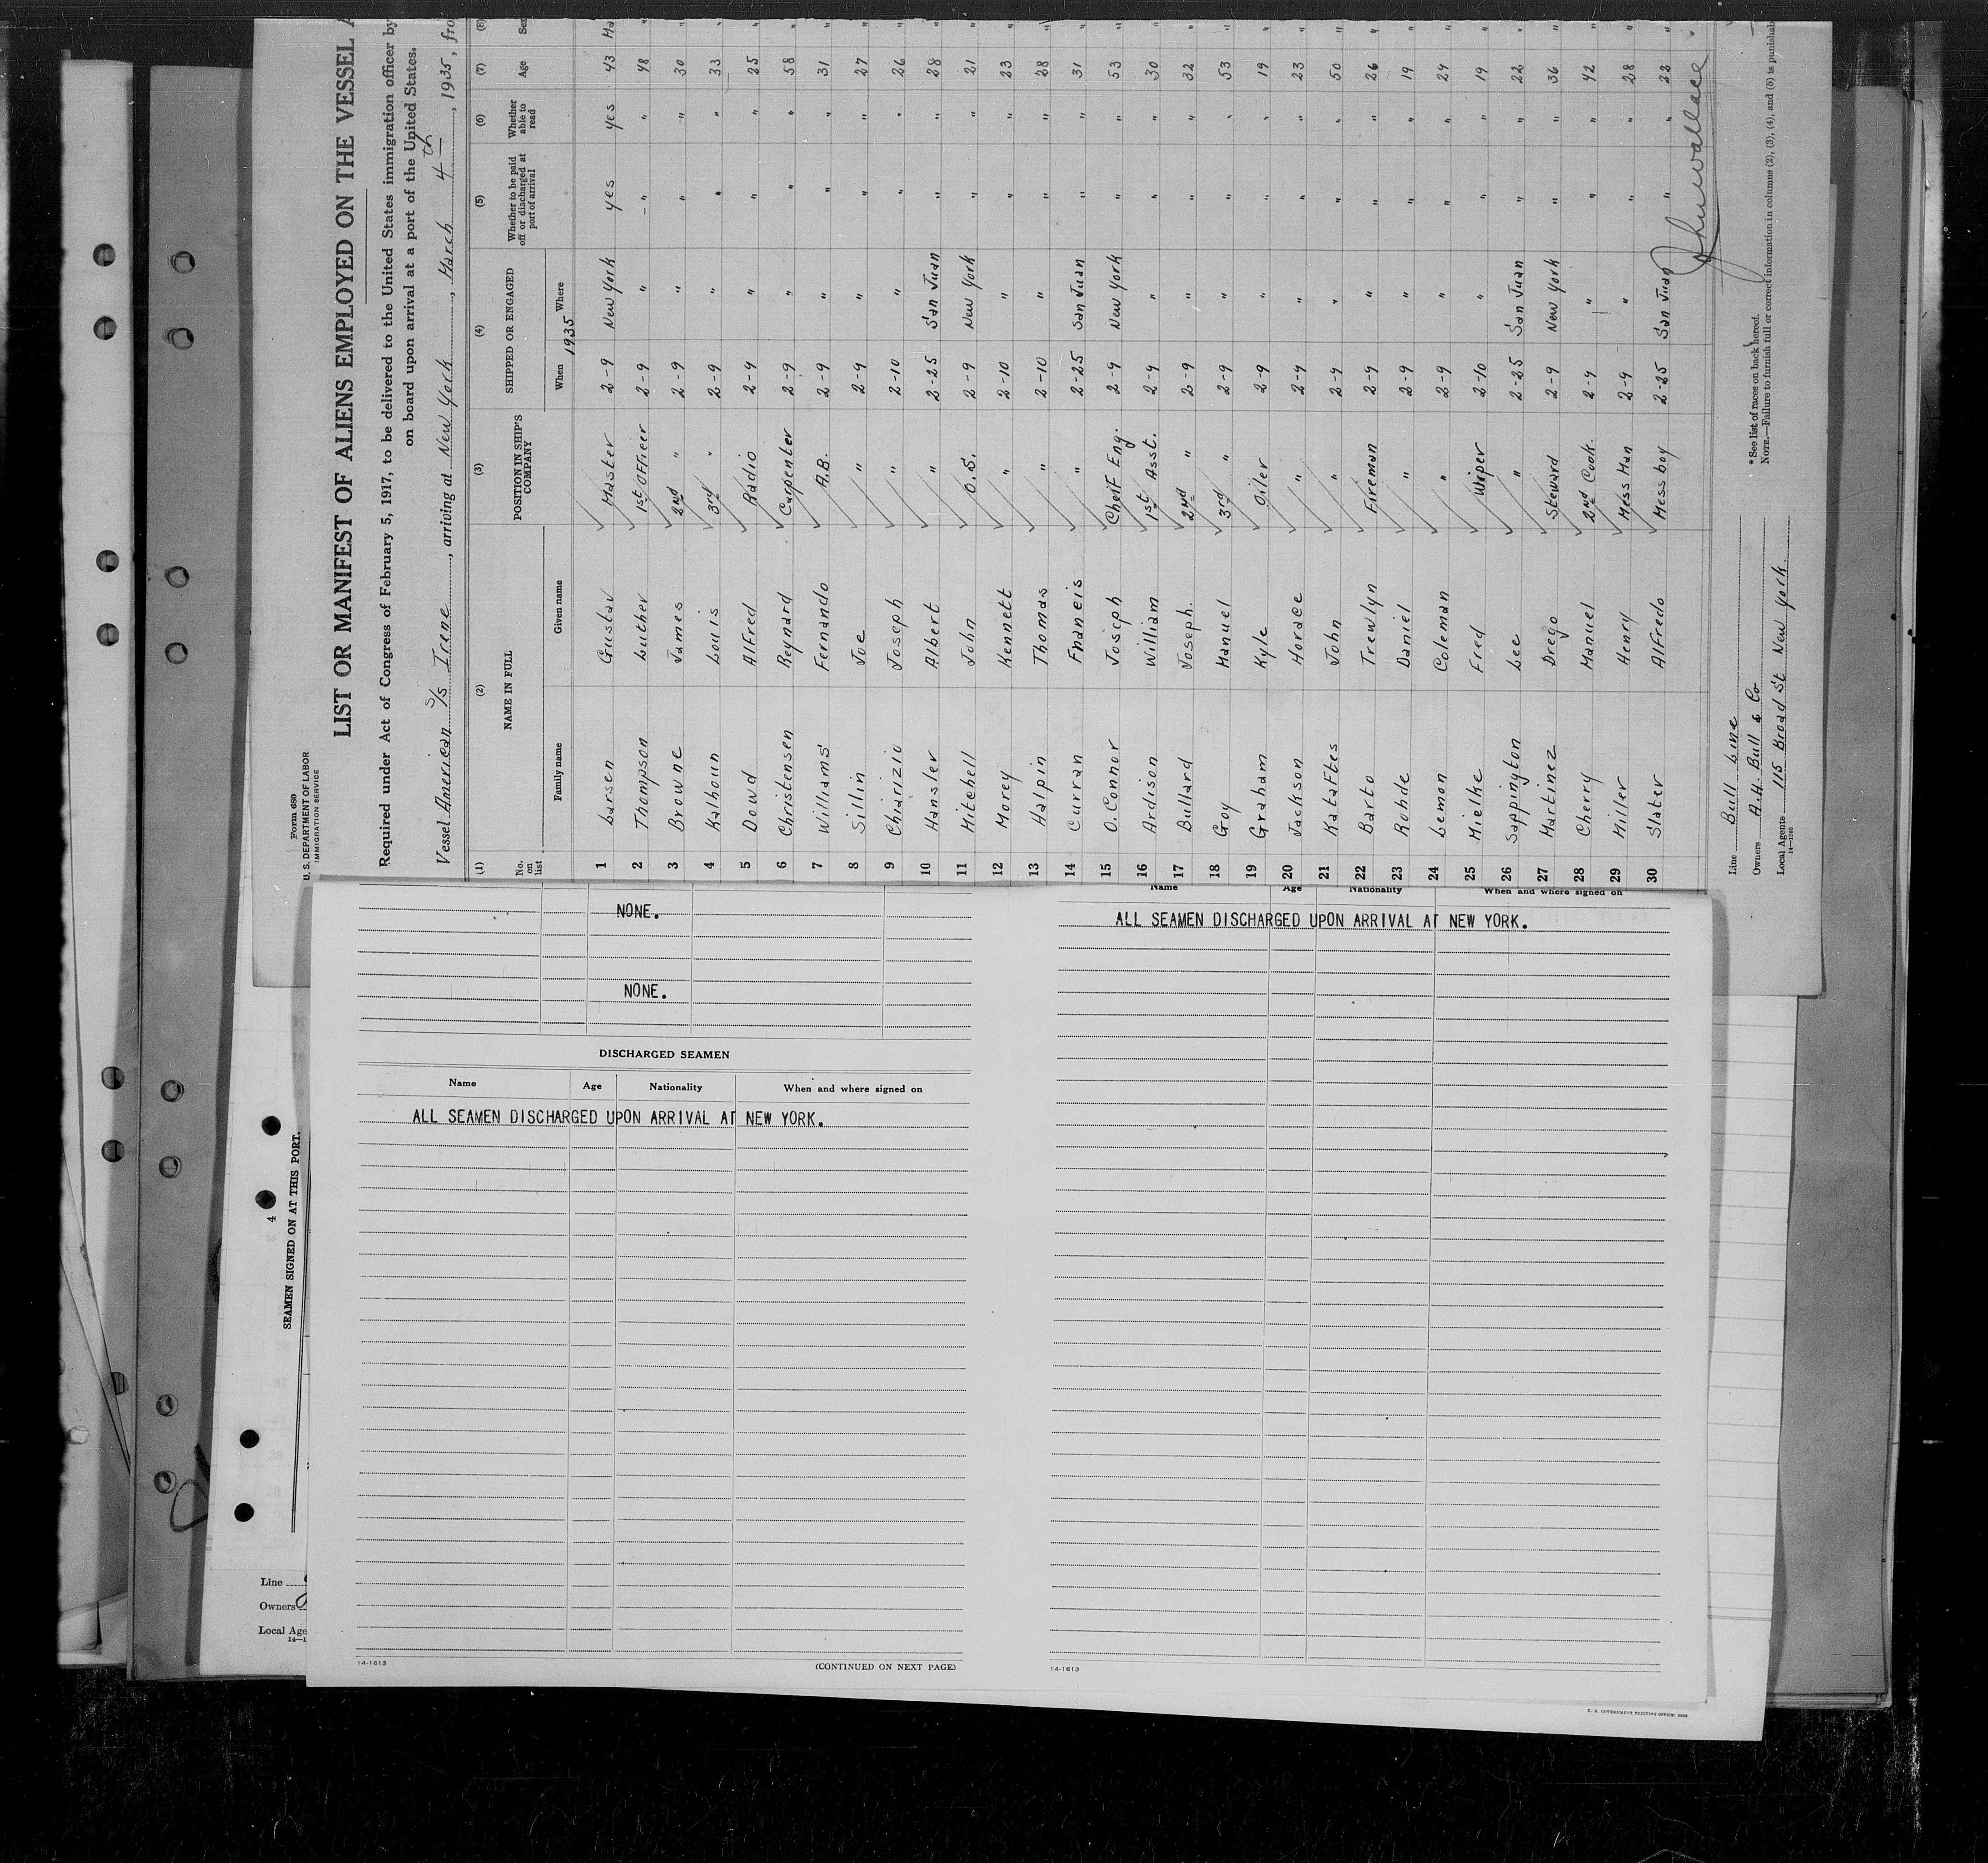 Form 680
U. S. DEPARTMENT OF LABOR
IMMIGRATION SERVICE
LIST OR MANIFEST OF ALIENS EMPLOYED ON THE VESSEL A
Required under Act of Congress of February 5, 1917, to be delivered to the United States immigration officer by
on board upon arrival at a port of the United States.
Vessel American S/s Irene, arriving at New York, March 4th, 1935, fro
(1) (2) (3) (4) (5) (6) (7) (8)
No. on list NAME IN FULL POSITION IN SHIP'S COMPANY SHIPPED OR ENGAGED Whether to be paid off or discharged at port of arrival Whether able to read Age Sex
Family name Given name When Where
1935
1 Larsen Gustav Master 2-9 New York yes yes 43 Ma
2 Thompson Luther 1st Officer 2-9 " " " 48 "
3 Browne James 2nd " 2-9 " " " 30 "
4 Kalhoun Louis 3rd " 2-9 " " " 33 "
5 Dowd Alfred Radio 2-9 " " " 25 "
6 Christensen Reynard Carpenter 2-9 " " " 58 "
7 Williams Fernando A.B. 2-9 " " " 31 "
8 Sillin Joe " 2-9 " " " 27 "
9 Chiarizio Joseph " 2-10 " " " 26 "
10 Hansler Albert " 2-25 San Juan " " 28 "
11 Mitchell John O.S. 2-9 New York " " 21 "
12 Morey Kennett " 2-10 " " " 23 "
13 Halpin Thomas " 2-10 " " " 28 "
14 Curran Franeis " 2-25 San Juan " " 31 "
15 O.Connor Joseph Cheif Eng. 2-9 New York " " 53 "
16 Ardison William 1st Asst. 2-9 " " " 30 "
17 Bullard Joseph. 2nd " 2-9 " " " 32 "
18 Goy Manuel 3rd " 2-9 " " " 53 "
19 Graham Kyle Oiler 2-9 " " " 19 "
20 Jackson Horace " 2-9 " " " 23 "
21 Kataftes John " 2-9 " " " 50 "
22 Barto Trewlyn Fireman 2-9 " " " 26 "
23 Rohde Daniel " 2-9 " " " 19 "
24 Lemon Coleman " 2-9 " " " 24 "
25 Mielke Fred Wiper 2-10 " " " 19 "
26 Sappington Lee " 2-25 San Juan " " 22 "
27 Martinez Drego Steward 2-9 New York " " 36 "
28 Cherry Manuel 2nd Cook. 2-9 " " " 42 "
29 Miller Henry Mess Man 2-9 " " " 28 "
30 Slater Alfredo Mess boy 2-25 San Juan " " 22 "
Line Bull Line
Owners A.H. Bull & Co
Local Agents 115 Broad St New York
14-1240
* See list of races on back hereof.
NOTE.—Failure to furnish full or correct information in columns (2), (3), (4), and (5) is punishab
NONE.
NONE.
DISCHARGED SEAMEN
Name Age Nationality When and where signed on
ALL SEAMEN DISCHARGED UPON ARRIVAL AT NEW YORK.
14-1613
(CONTINUED ON NEXT PAGE)
Name Age Nationality When and where signed on
ALL SEAMEN DISCHARGED UPON ARRIVAL AT NEW YORK.
14-1613
4
SEAMEN SIGNED ON AT THIS PORT.
Line
Owners
Local Age
14—1
U. S. GOVERNMENT PRINTING OFFICE